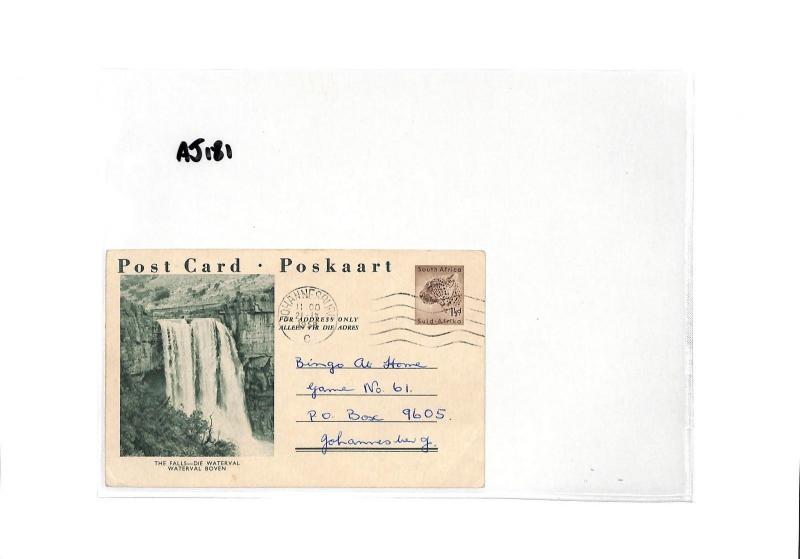 AJ181
Post Card · Poskaart
South Africa
1½d
Suid-Afrika
JOHANNESBURG
11 00
C
FOR ADDRESS ONLY
ALLEEN VIR DIE ADRES
Bingo At Home
Game No. 61.
P.O. Box 9605.
Johannesberg.
THE FALLS—DIE WATERVAL
WATERVAL BOVEN